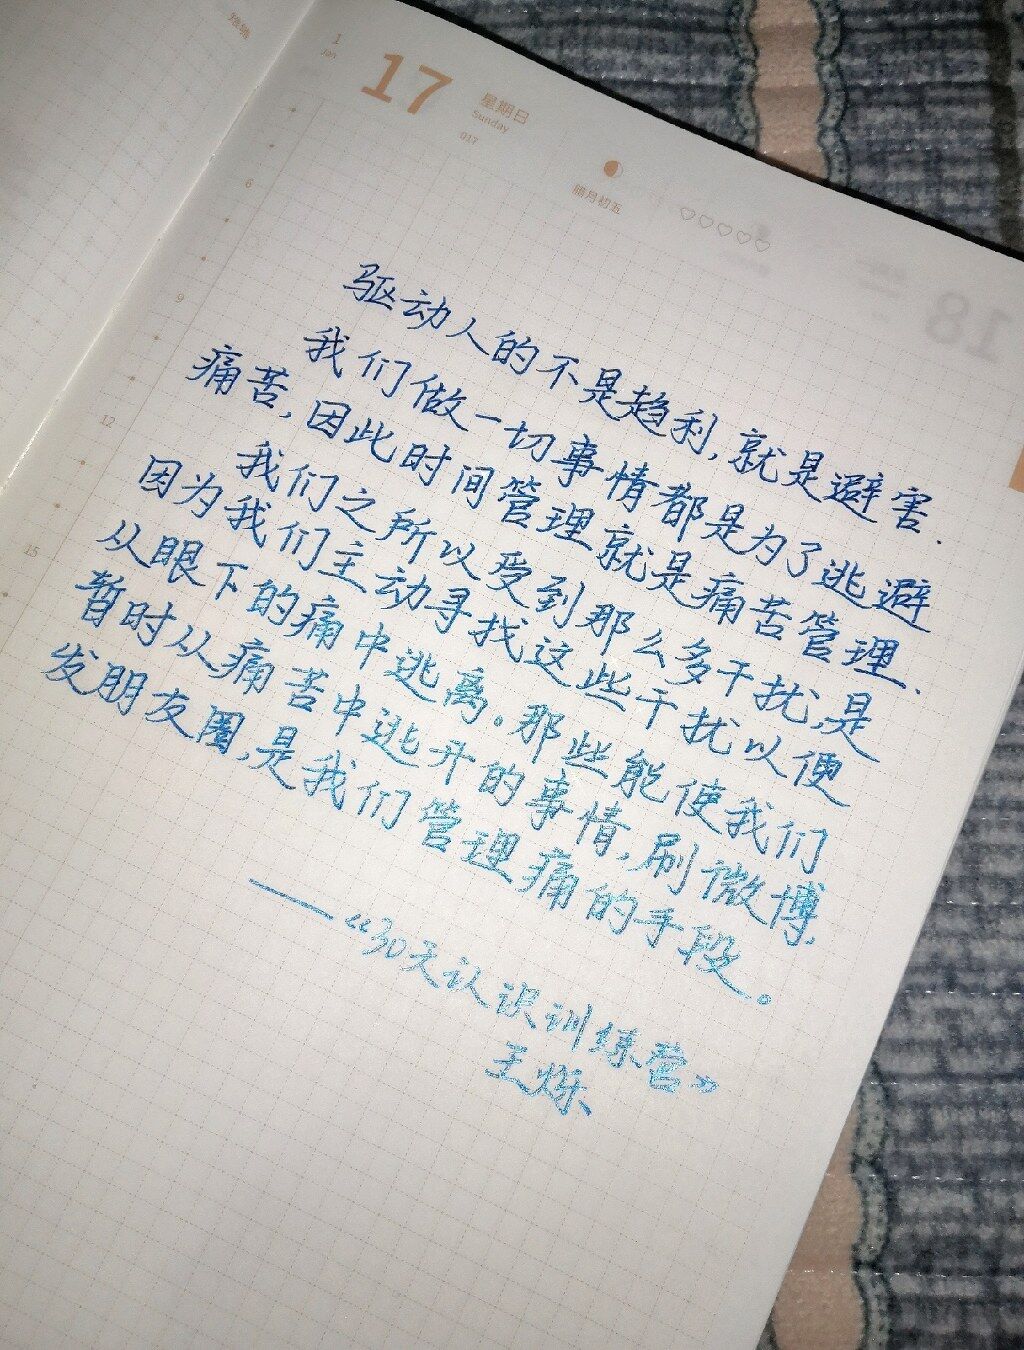 1
Jan
17
星期日
Sunday
017
腊月初五
6
9
12
15
18
驱动人的不是趋利,就是避害.
我们做一切事情都是为了逃避
痛苦,因此时间管理就是痛苦管理.
我们之所以受到那么多干扰,是
因为我们主动寻找这些干扰以便
从眼下的痛中逃离。那些能使我们
暂时从痛苦中逃开的事情,刷微博.
发朋友圈,是我们管理痛的手段。
——《30天认识训练营》
王烁